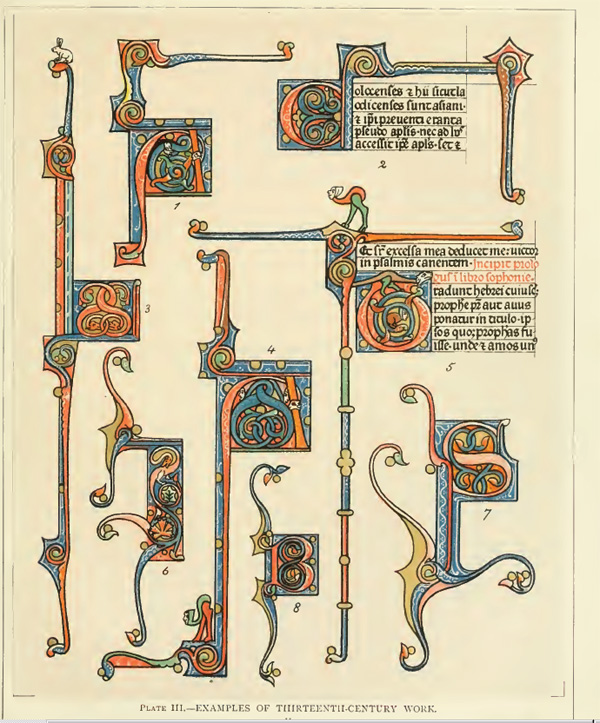 1
olocenses ⁊ hii sicutla
odicenses sunt asiani·
⁊ ip̄i preventi erant a
pseudo apl̄is·nec ad
accessit ip̄e apl̄s·set ⁊
2
3
4
Et sr̄ excelsa mea deducet me: victor
in psalmis canentem·Incipit prolo
gus ī libro sophonie·
radunt hebrei cuiusc
prophe pr̄ aut avus
ponatur in titulo·ip
sos quoq; prophas fu
isse·unde ⁊ amos
5
6
7
8
PLATE III.—EXAMPLES OF THIRTEENTH-CENTURY WORK.